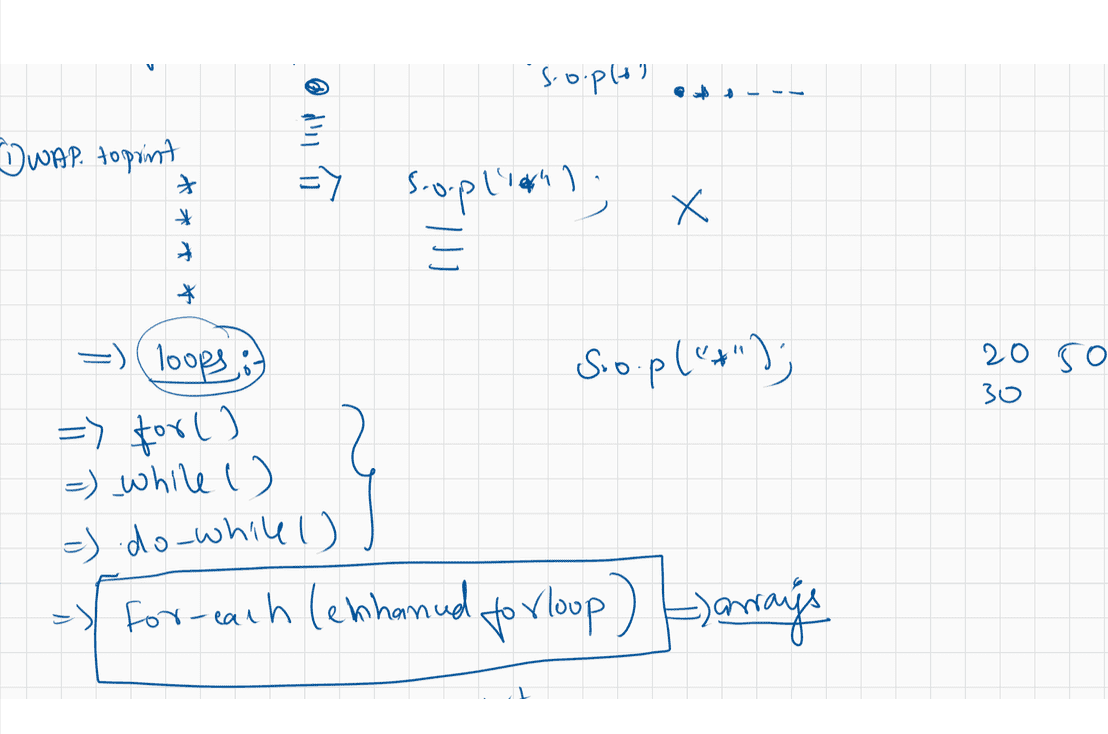 S.o.p(*)
① WAP. to print
*
=> S.o.p("*");
*
*
*
=> loops:-
S.o.p("*");
20 50
30
=> for()
=> while()
=> do-while()
=> For-each (enhanced for loop) => arrays